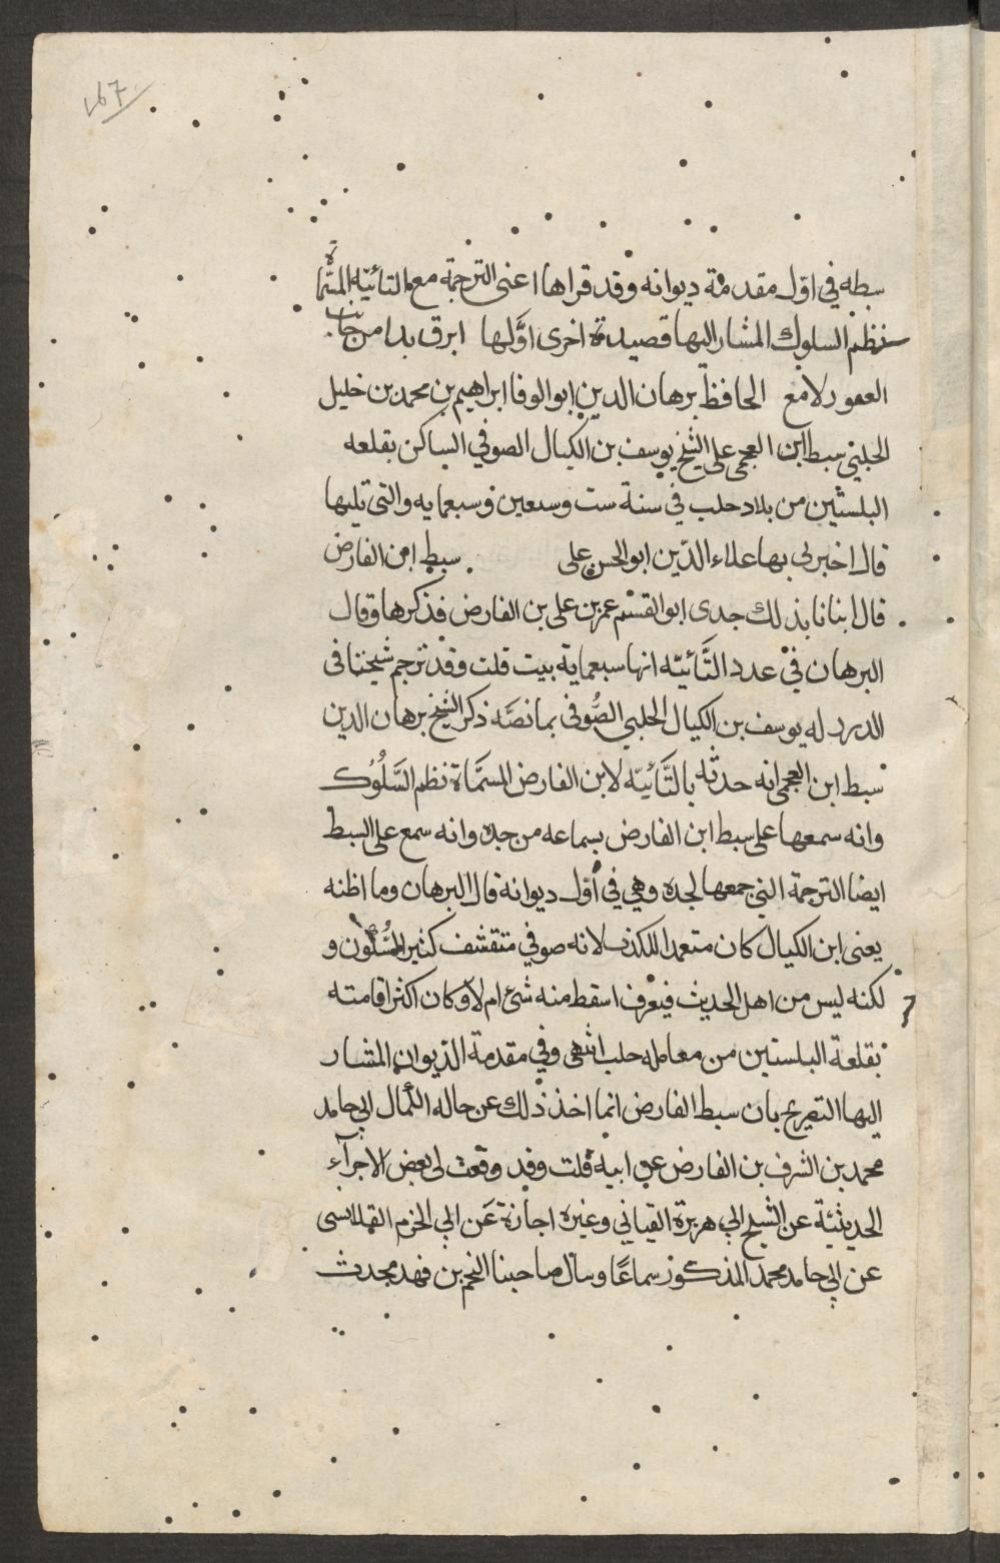 سبطه في اوّل مقدمة ديوانه وقد قراها اعنى الترجمة مع التائية المسماة
بنظم السلوك المشار اليها قصيدة اخرى اوّلها ابرق بدا من جانب
الغور لامع الحافظ برهان الدين ابو الوفا ابراهيم بن محمد بن خليل
الحلبي سبط ابن العجمى على الشيخ يوسف بن الكيال الصوفي الساكن بقلعه
البلستين من بلاد حلب في سنة ست وسبعين وسبعمايه والتى تليها
قال اخبرنى بها علاء الدّين ابو الحسن على سبط ابن الفارض
قال انبانا بذلك جدى ابو القسم عمر بن على بن الفارض فذكرها وقال
البرهان في عدد التَّائيّه انها سبعماية بيت قلت وقد ترجم شيخنا فى
الدرر له يوسف بن الكيال الحلبي الصُّوفى بما نصّه ذكر الشيخ برهان الدين
سبط ابن العجمى انه حدثه بالتَّائيّه لابن الفارض المسمَّاة نظم السَّلُوك
وانه سمعها على سبط ابن الفارض بسماعه من جده وانه سمع على السبط
ايضا الترجمة التي جمعها لجده وهي في اوّل ديوانة قال البرهان وما اظنه
يعنى ابن الكيال كان متعمدا للكذب لانه صوفي متقشف كثير السُّكون و
لكنه ليس من اهل الحديث فيعرف اسقط منه شئ ام لا وكان اكثر اقامته
بقلعة البلستين من معامله حلب انتهى وفي مقدمة الديوان المشار
اليها التصريح بان سبط الفارض انما اخذ ذلك عن خاله الكمال ابي حامد
محمد بن الشرف بن الفارض عن ابيه قلت وقد وقعت لى بعض الاجزآء
الحديثيّة عن الشيخ ابي هريرة القبابي وغيره اجازة عَن ابي الحزم القلانسى
عن ابي حامد محمد المذكور سماعًا وسال صاحبنا النجم بن فهد محدث